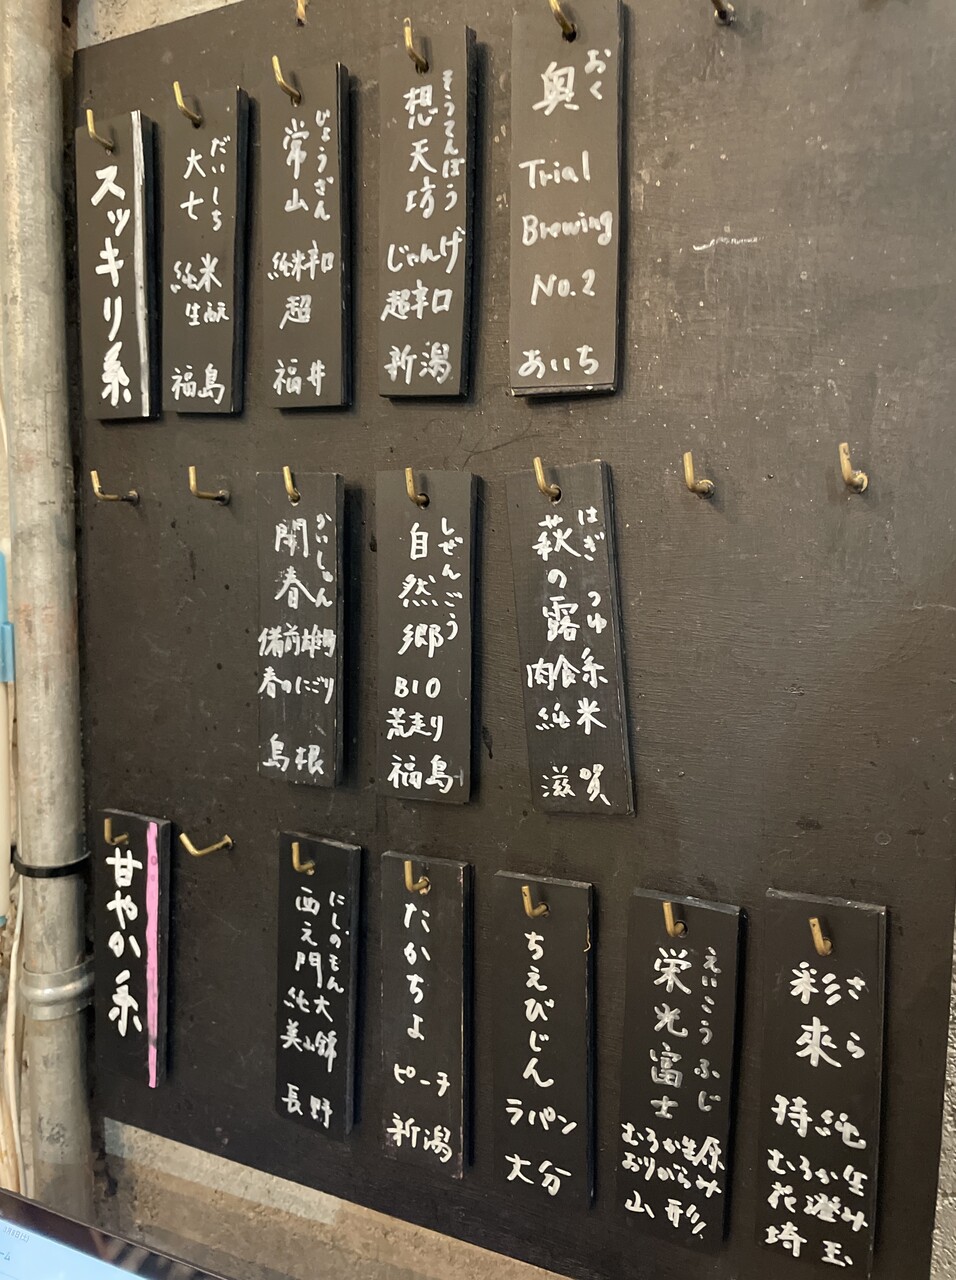 スッキリ系
大七
だいしち
純米
生酛
福島
常山
じょうざん
純米辛口
超
福井
想天坊
そうてんぼう
じゃんげ
超辛口
新潟
奥
おく
Trial
Brewing
No.2
あいち
開春
かいしゅん
備前雄町
春のにごり
島根
自然郷
しぜんごう
BIO
荒走り
福島
萩の露
はぎ つゆ
肉食系
純米
滋賀
甘やか系
西之門
にしのもん
純大
美山錦
長野
たかちよ
ピーチ
新潟
ちえびじん
ラパン
大分
栄光富士
えいこうふじ
むろか生原
おりがらみ
山形
彩來
さら
特純
むろか生
花澄み
埼玉